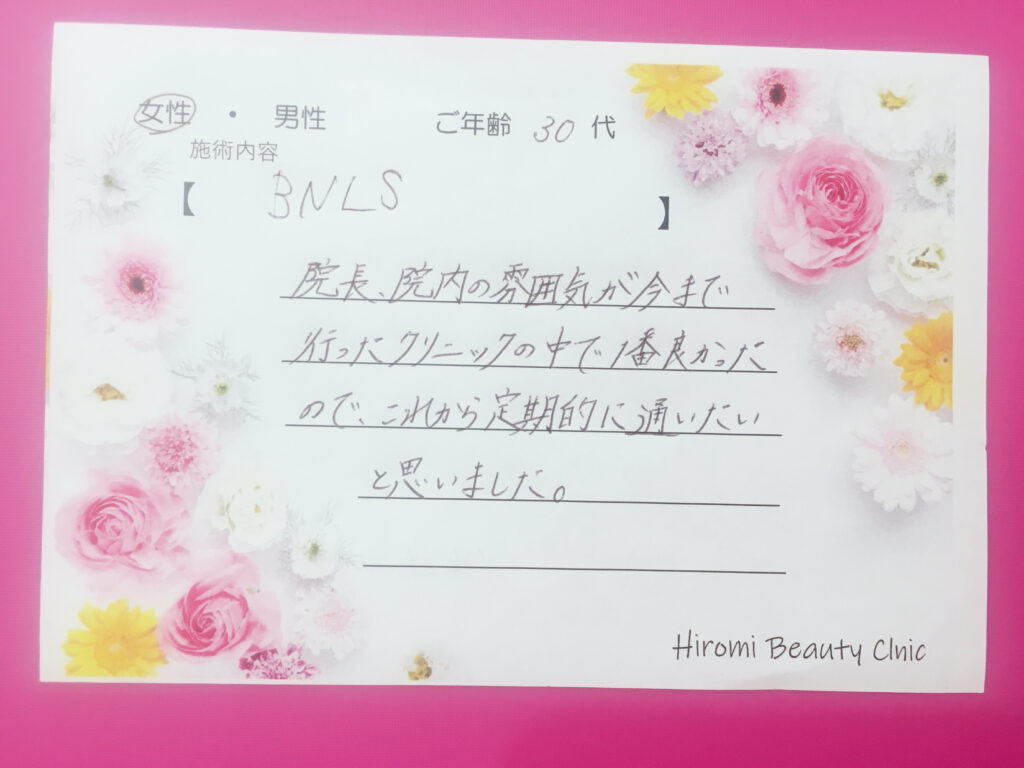 女性 ・ 男性 ご年齢 30 代
施術内容
【 BNLS 】
院長、院内の雰囲気が今まで
行ったクリニックの中で1番良かった
ので、これから定期的に通いたい
と思いました。
Hiromi Beauty Clnic